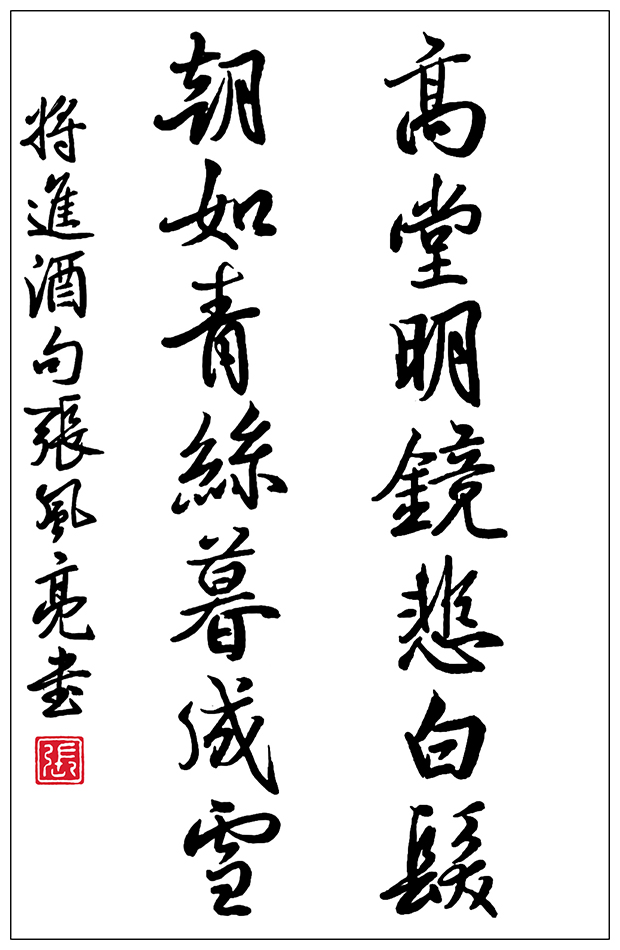 高堂明鏡悲白髮
朝如青絲暮成雪
將進酒句張風亮書
張